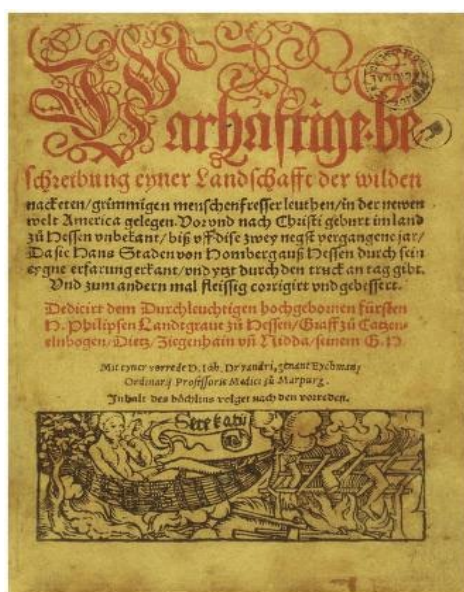 Warhaftige be
schreibung eyner Landschafft der wilden
nacketen/grimmigen menschenfresser leuthen/in der newen
welt America gelegen. Vor vnd nach Christi geburt im land
zů Hessen vnbekant/biß vff dise zwey negst vergangene jar/
Da sie Hans Staden von Homberg auß Hessen durch sein
eygne erfarung erkant/vnd ytzt durch den truck an tag gibt.
Vnd zum andern mal fleissig corrigirt vnd gebessert.
Dedicirt dem Durchleuchtigen hochgebornen fürsten
H. Philipsen Landtgraue zů Hessen/Graff zů Catzen-
elnbogen/Dietz/Ziegenhain vñ Nidda/seinem G. H.
Mit eyner vorrede D. Joh. Dryandri, genant Eychman,
Ordinarij Professoris Medici zů Marpurg.
Inhalt des bůchlins volget nach den vorreden.
Setekatu